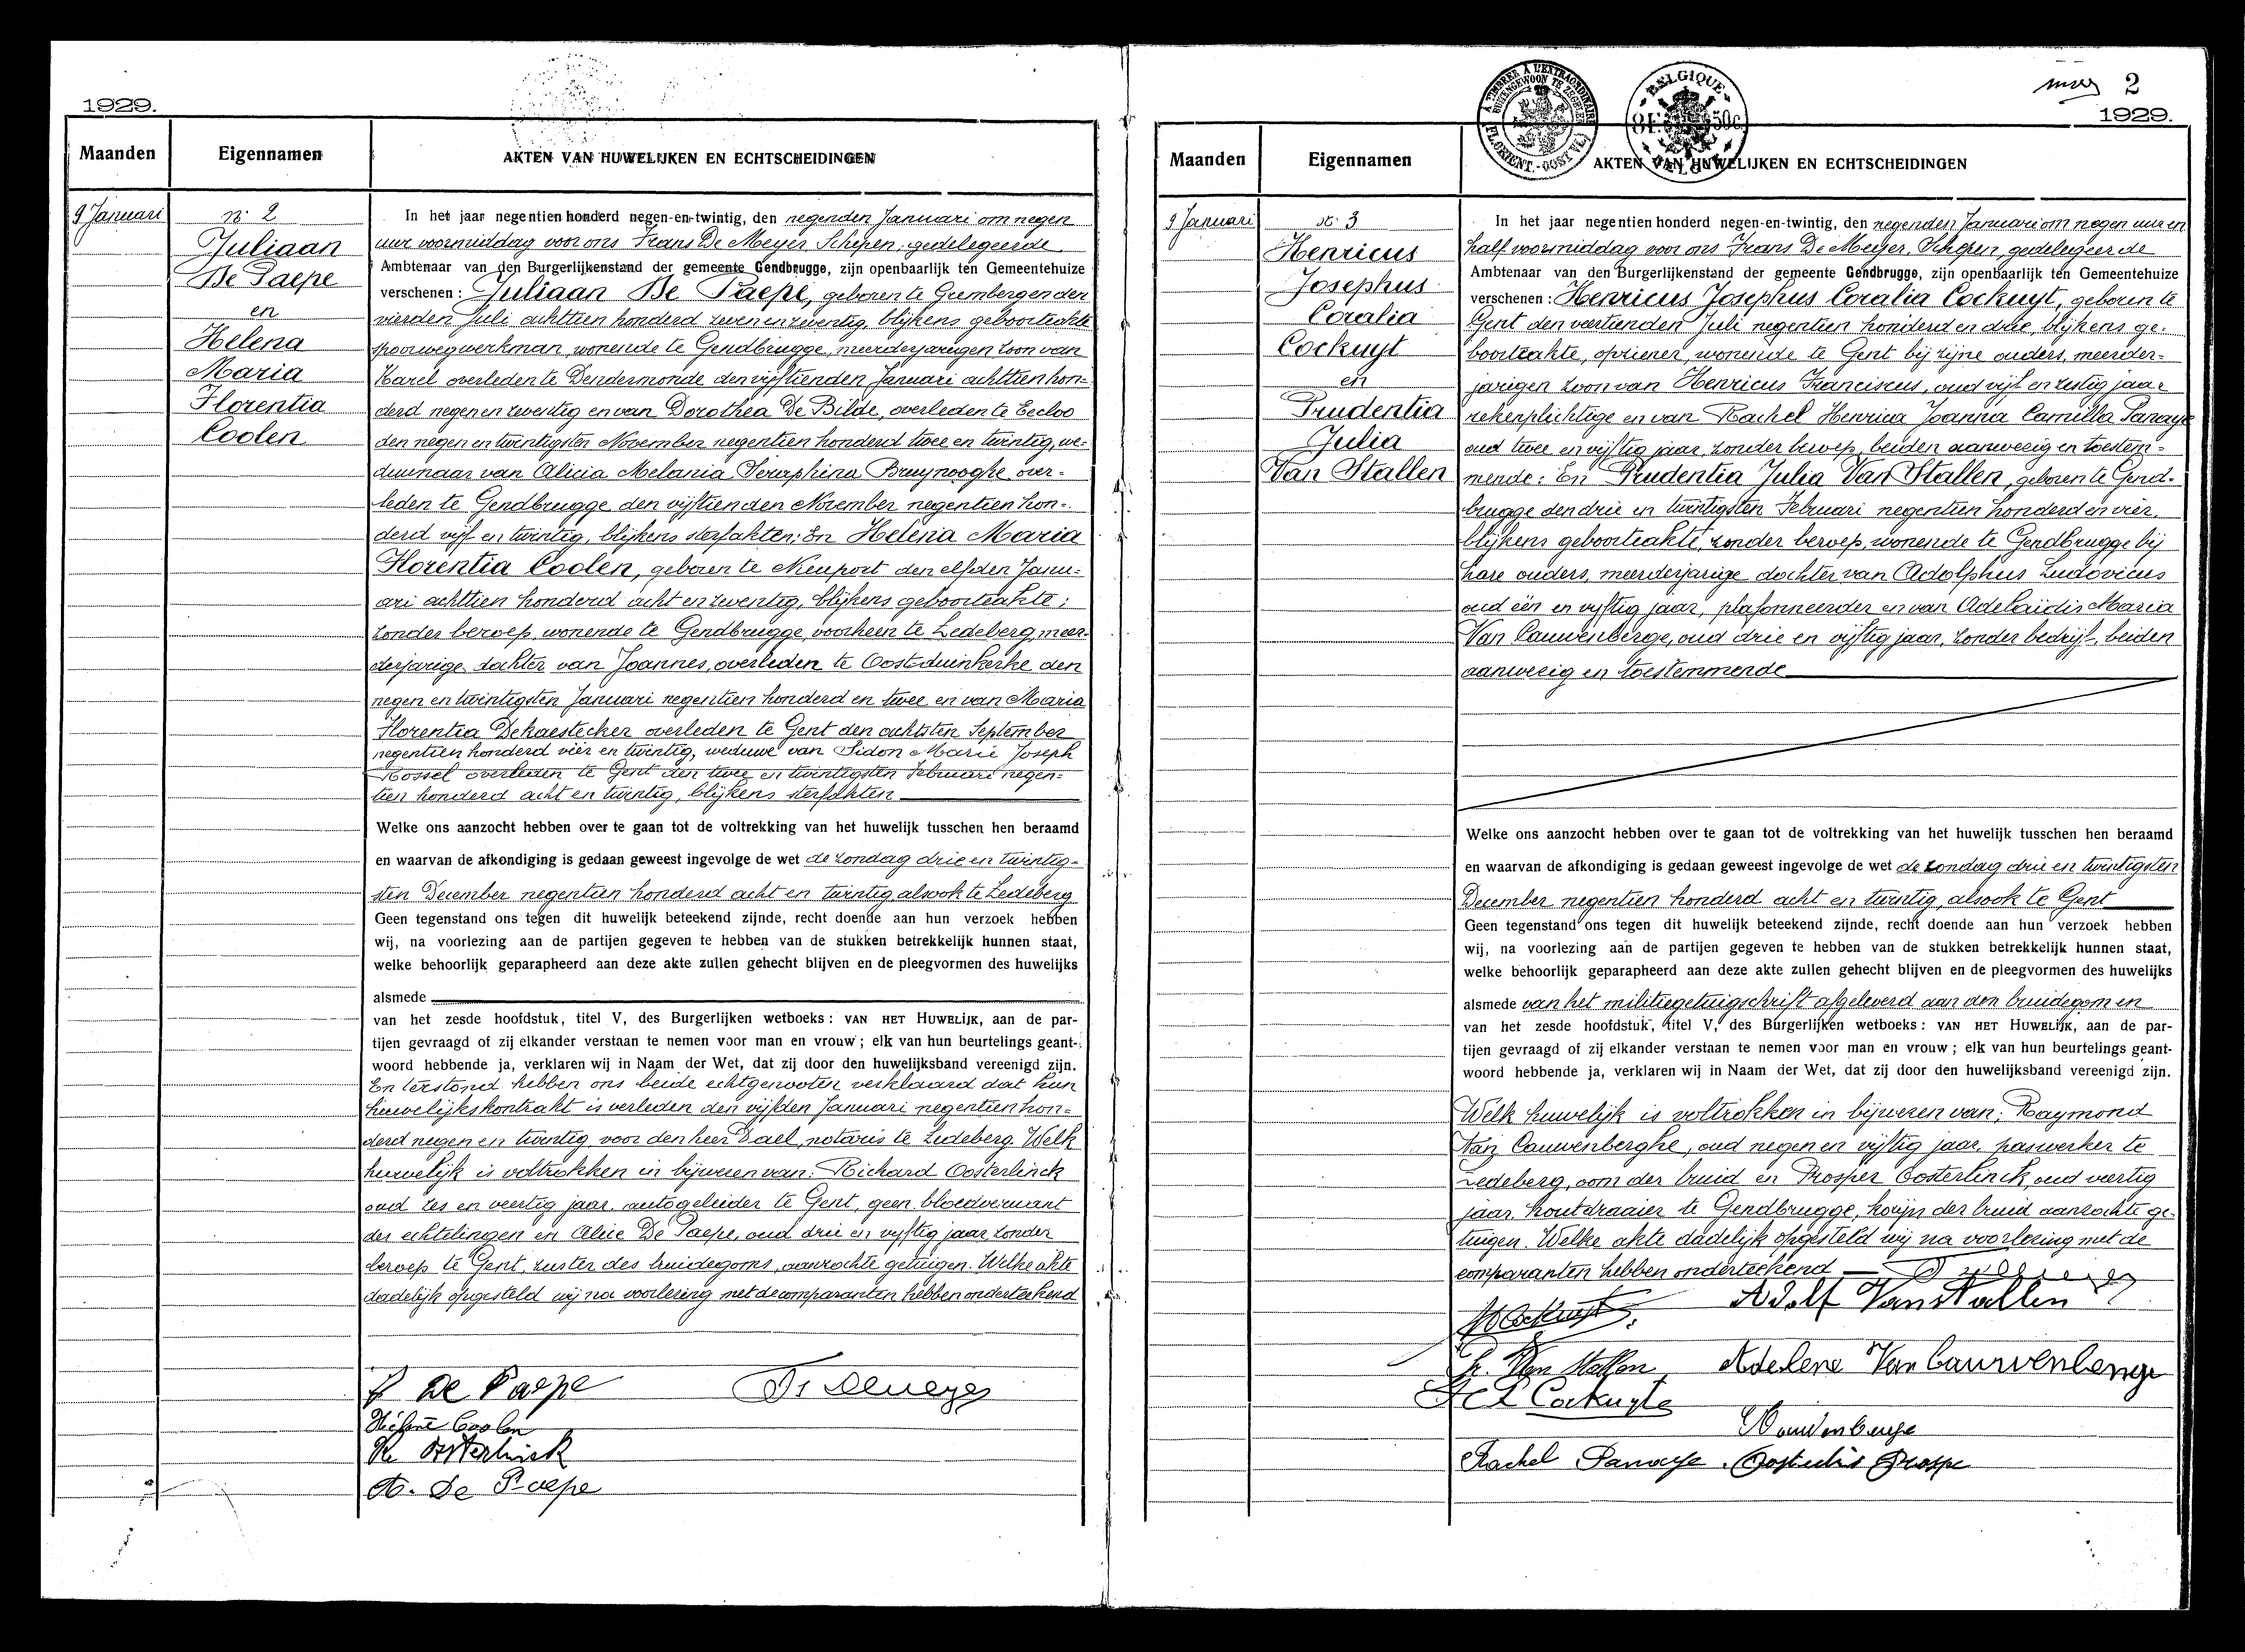 1929.
Maanden
Eigennamen
AKTEN VAN HUWELIJKEN EN ECHTSCHEIDINGEN
9 Januari
nr. 2
Juliaan
De Paepe
en
Helena
Maria
Florentia
Coolen
In het jaar negentien honderd negen-en-twintig, den negenden Januari om negen
uur voormiddag voor ons Frans De Meyer Schepen, gedelegeerde
Ambtenaar van den Burgerlijkenstand der gemeente Gendbrugge, zijn openbaarlijk ten Gemeentehuize
verschenen : Juliaan De Paepe, geboren te Grembergen der
vierden Juli achttien honderd zeven en zeventig, blijkens geboorteakte
spoorwegwerkman, wonende te Gendbrugge, meerderjarigen zoon van
Karel overleden te Dendermonde den vijftienden Januari achttien hon-
derd negen en zeventig en van Dorothea De Bilde, overleden te Eecloo
den negen en twintigsten November negentien honderd twee en twintig, we-
duwnaar van Alicia Melania Seraphina Bruynooghe over-
leden te Gendbrugge den vijftienden November negentien hon-
derd vijf en twintig, blijkens sterfakten: En Helena Maria
Florentia Coolen, geboren te Nieuport den elfden Janu-
ari achttien honderd acht en zeventig, blijkens geboorteakte ;
zonder beroep, wonende te Gendbrugge, voorheen te Ledeberg, meer-
derjarige dochter van Joannes, overleden te Oost-duinkerke den
negen en twintigsten Januari negentien honderd en twee en van Maria
Florentia Dekaestecker overleden te Gent den achtsten September
negentien honderd vier en twintig, weduwe van Sidon Marie Joseph
Rossel overleden te Gent den twee en twintigsten Februari negen-
tien honderd acht en twintig, blijkens sterfakten
Welke ons aanzocht hebben over te gaan tot de voltrekking van het huwelijk tusschen hen beraamd
en waarvan de afkondiging is gedaan geweest ingevolge de wet de zondag drie en twintig-
sten December negentien honderd acht en twintig, alsook te Ledeberg
Geen tegenstand ons tegen dit huwelijk beteekend zijnde, recht doende aan hun verzoek hebben
wij, na voorlezing aan de partijen gegeven te hebben van de stukken betrekkelijk hunnen staat,
welke behoorlijk geparapheerd aan deze akte zullen gehecht blijven en de pleegvormen des huwelijks
alsmede
van het zesde hoofdstuk, titel V, des Burgerlijken wetboeks : VAN HET HUWELIJK, aan de par-
tijen gevraagd of zij elkander verstaan te nemen voor man en vrouw ; elk van hun beurtelings geant-
woord hebbende ja, verklaren wij in Naam der Wet, dat zij door den huwelijksband vereenigd zijn.
En terstond hebben ons beide echtgenooten verklaard dat hun
huwelijkskontrakt is verleden den vijfden Januari negentien hon-
derd negen en twintig voor den heer Dael, notaris te Ledeberg. Welk
huwelijk is voltrokken in bijwezen van: Richard Oosterlinck
oud zes en veertig jaar, autogeleider te Gent, geen bloedverwant
der echtelingen en Alice De Paepe, oud drie en vijftig jaar, zonder
beroep te Gent, zuster des bruidegoms, aanzochte getuigen. Welke akte
dadelijk opgesteld wij na voorlezing met de comparanten hebben onderteekend
J De Paepe
Fr Demeyer
Hélène Coolen
R. Oosterlinck
A. De Paepe
2
1929.
Maanden
Eigennamen
A TIMBRER A L'EXTRAORDINAIRE
BUITENGEWOON TE ZEGELEN
FL. ORIENT. - OOST VL.
BELGIQUE
8F. 50c
BELGIE
AKTEN VAN HUWELIJKEN EN ECHTSCHEIDINGEN
9 Januari
nr. 3
Henricus
Josephus
Coralia
Cockuyt
en
Prudentia
Julia
Van Stallen
In het jaar negentien honderd negen-en-twintig, den negenden Januari om negen uur en
half voormiddag voor ons Frans De Meyer, Schepen, gedelegeerde
Ambtenaar van den Burgerlijkenstand der gemeente Gendbrugge, zijn openbaarlijk ten Gemeentehuize
verschenen : Henricus Josephus Coralia Cockuyt, geboren te
Gent den veertienden Juli negentien honderd en drie, blijkens ge-
boorteakte, opziener, wonende te Gent bij zijne ouders, meerder-
jarigen zoon van Henricus Franciscus, oud vijf en zestig jaar
rekenplichtige en van Rachel Henrica Joanna Camilla Panaye
oud twee en vijftig jaar, zonder beroep, beiden aanwezig en toestem-
mende: En Prudentia Julia Van Stallen, geboren te Gend-
brugge den drie en twintigsten Februari negentien honderd en vier,
blijkens geboorteakte, zonder beroep, wonende te Gendbrugge bij
hare ouders, meerderjarige dochter van Adolphus Ludovicus
oud één en vijftig jaar, plafonneerder en van Adelaïdis Maria
Van Cauwenberge, oud drie en vijftig jaar, zonder bedrijf, beiden
aanwezig en toestemmende
Welke ons aanzocht hebben over te gaan tot de voltrekking van het huwelijk tusschen hen beraamd
en waarvan de afkondiging is gedaan geweest ingevolge de wet de zondag drie en twintigsten
December negentien honderd acht en twintig, alsook te Gent
Geen tegenstand ons tegen dit huwelijk beteekend zijnde, recht doende aan hun verzoek hebben
wij, na voorlezing aan de partijen gegeven te hebben van de stukken betrekkelijk hunnen staat,
welke behoorlijk geparapheerd aan deze akte zullen gehecht blijven en de pleegvormen des huwelijks
alsmede van het militiegetuigschrift afgeleverd aan den bruidegom en
van het zesde hoofdstuk, titel V, des Burgerlijken wetboeks : VAN HET HUWELIJK, aan de par-
tijen gevraagd of zij elkander verstaan te nemen voor man en vrouw ; elk van hun beurtelings geant-
woord hebbende ja, verklaren wij in Naam der Wet, dat zij door den huwelijksband vereenigd zijn.
Welk huwelijk is voltrokken in bijwezen van: Raymond
Van Cauwenberghe, oud negen en vijftig jaar, paswerker te
Ledeberg, oom der bruid en Prosper Oosterlinck, oud veertig
jaar, houtdraaier te Gendbrugge, kozijn der bruid aanzochte ge-
tuigen. Welke akte dadelijk opgesteld wij na voorlezing met de
comparanten hebben onderteekend
Adolf Vanstallen
Pr. Van Stallen
Adelene Van Cauwenberge
Cockuyt
Rachel Panaye